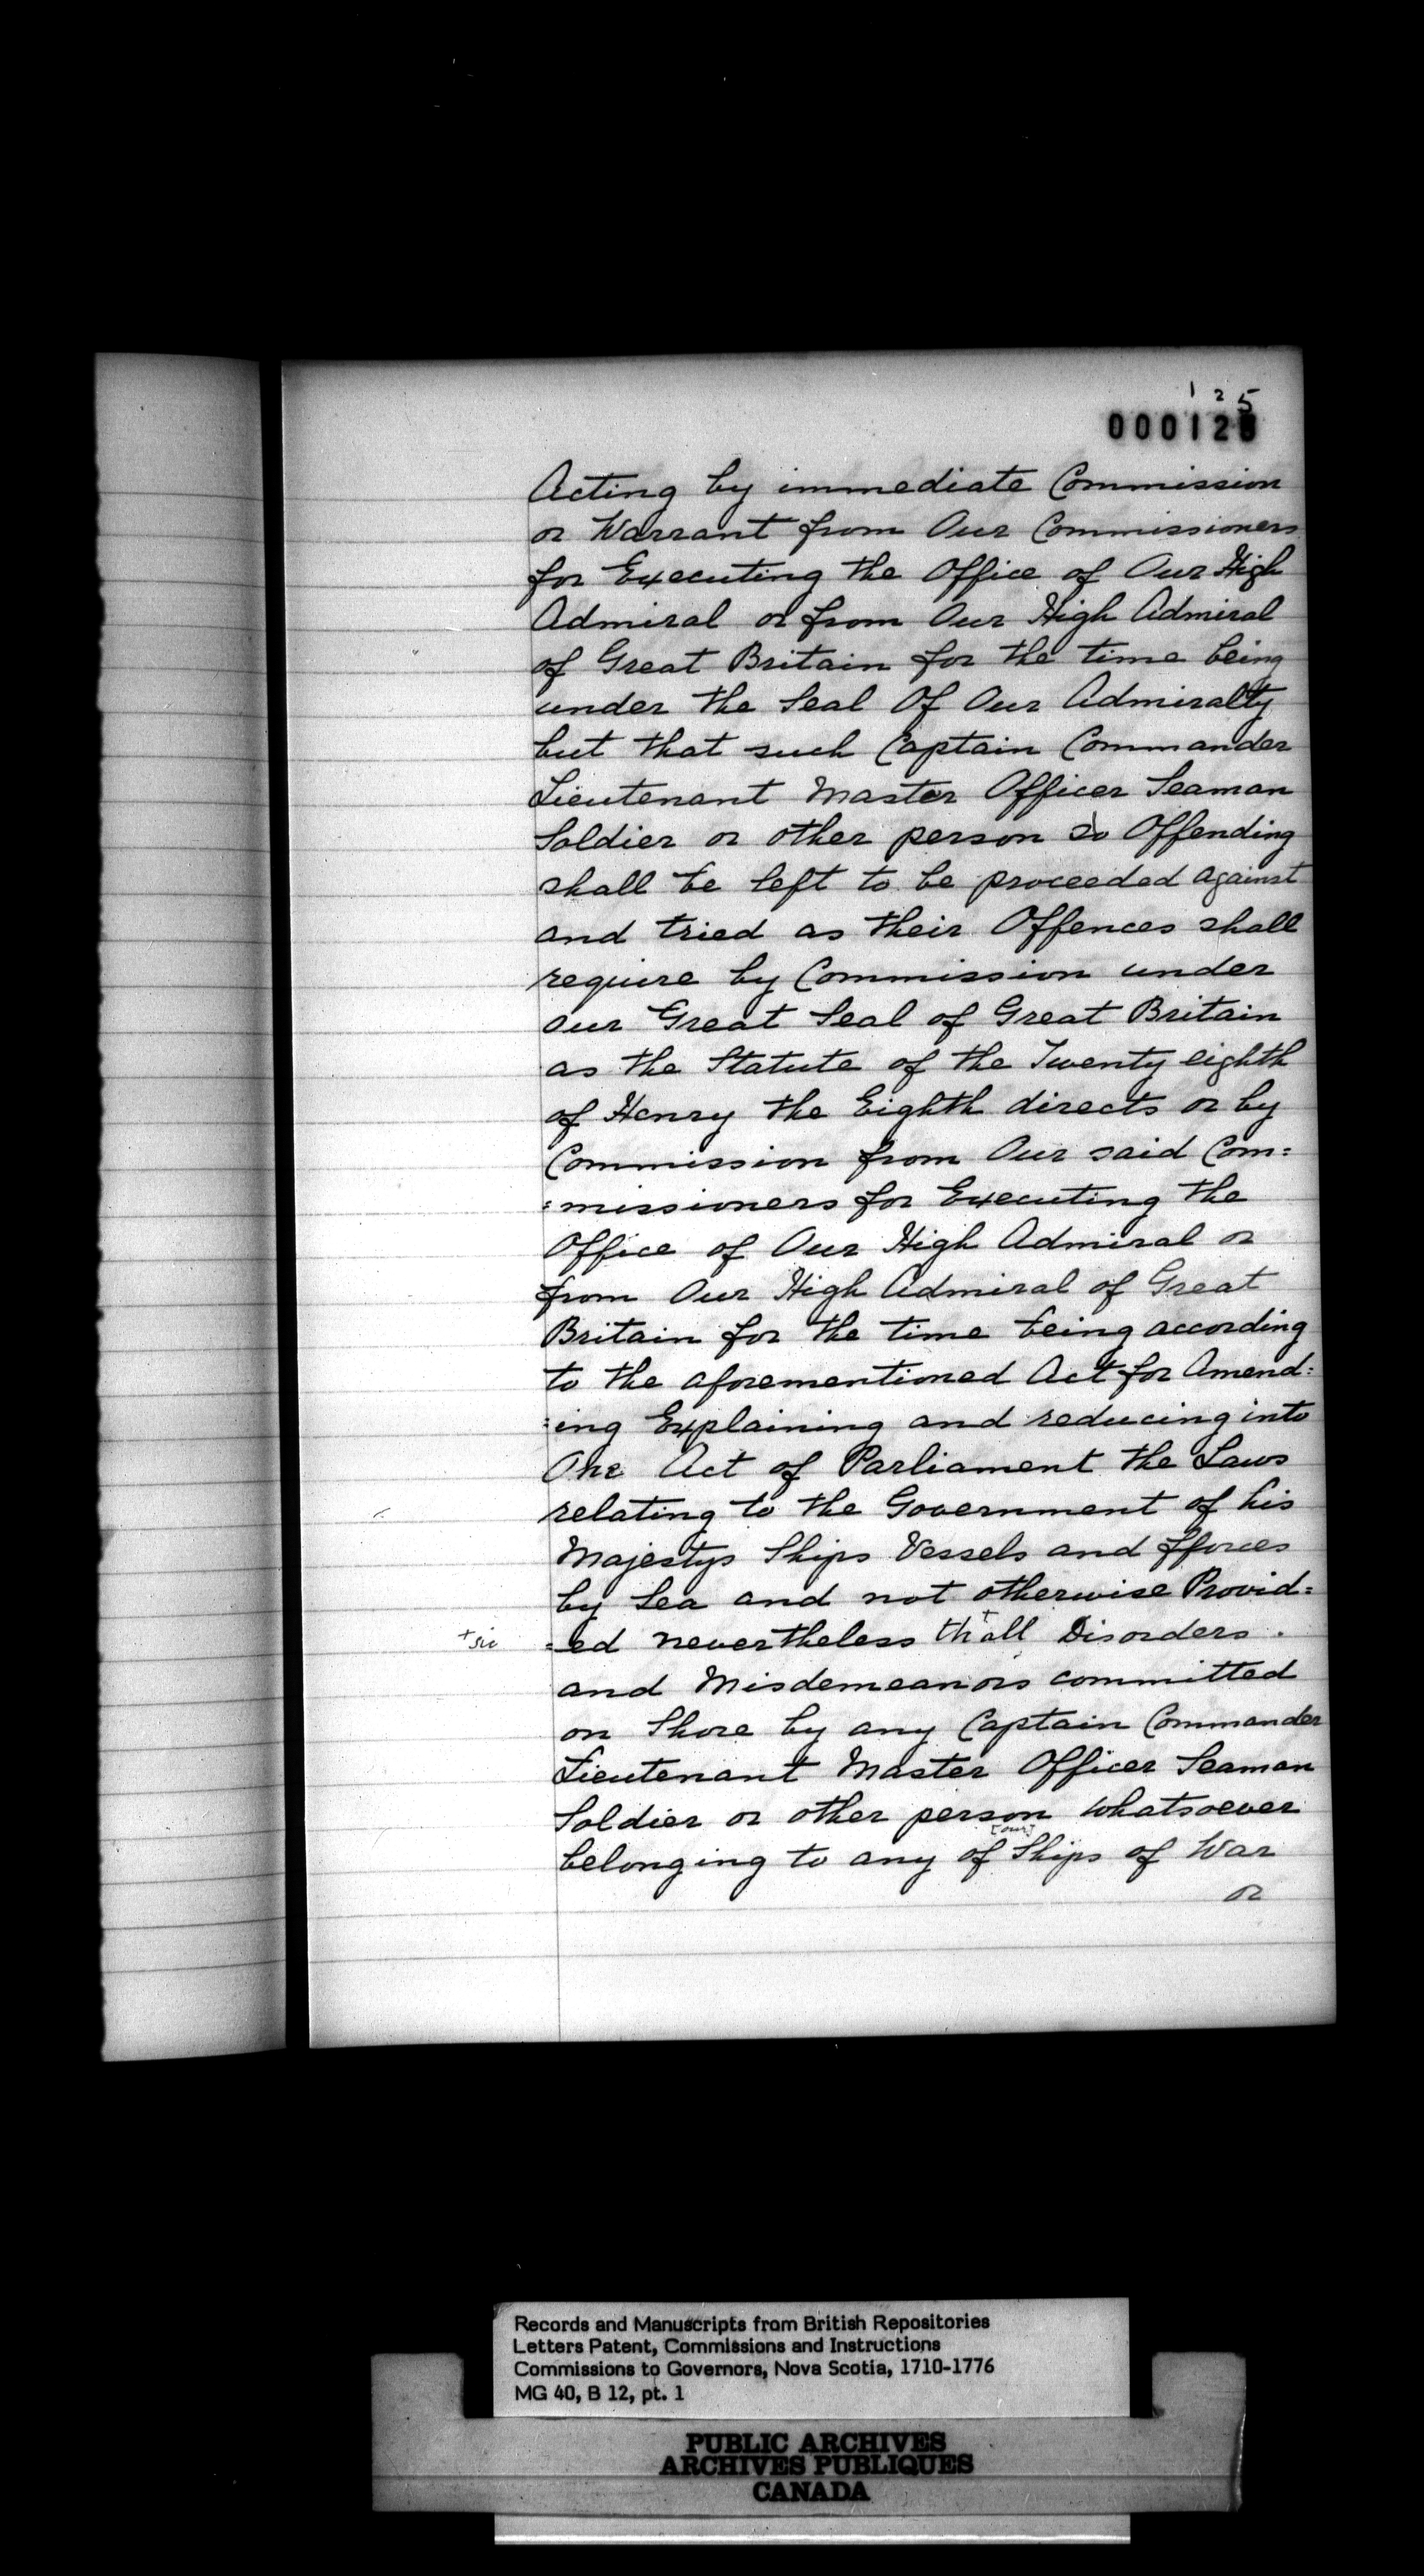 1 2 5
000128
Acting by immediate Commission
or Warrant from Our Commissioners
for Executing the Office of Our High
Admiral or from Our High Admiral
of Great Britain for the time being
under the Seal Of Our Admiralty
but that such Captain Commander
Lieutenant Master Officer Seaman
Soldier or other person so Offending
shall be left to be proceeded against
and tried as their Offences shall
require by Commission under
our Great Seal of Great Britain
as the Statute of the Twenty eighth
of Henry the Eighth directs or by
Commission from Our said Com=
=missioners for Executing the
Office of Our High Admiral or
from Our High Admiral of Great
Britain for the time being according
to the aforementioned Act for Amend=
=ing Explaining and reducing into
One Act of Parliament the Laws
relating to the Government of his
Majestys Ships Vessels and fforces
by Sea and not otherwise Provid=
+sic =ed nevertheless th+all Disorders.
and Misdemeanors committed
on Shore by any Captain Commander
Lieutenant Master Officer Seaman
Soldier or other person whatsoever
belonging to any of [our] Ships of War
or
Records and Manuscripts from British Repositories
Letters Patent, Commissions and Instructions
Commissions to Governors, Nova Scotia, 1710-1776
MG 40, B 12, pt. 1
PUBLIC ARCHIVES
ARCHIVES PUBLIQUES
CANADA